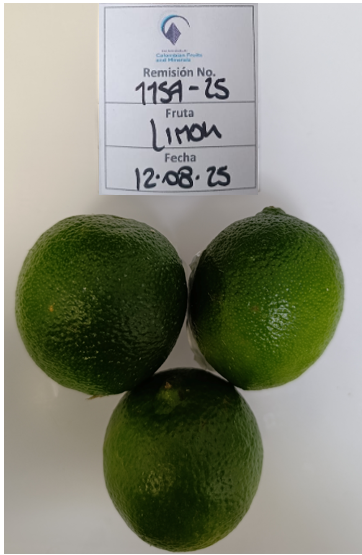 Colombian Fruits
and Minerals
Remisión No.
115A-25
Fruta
Limon
Fecha
12.08.25